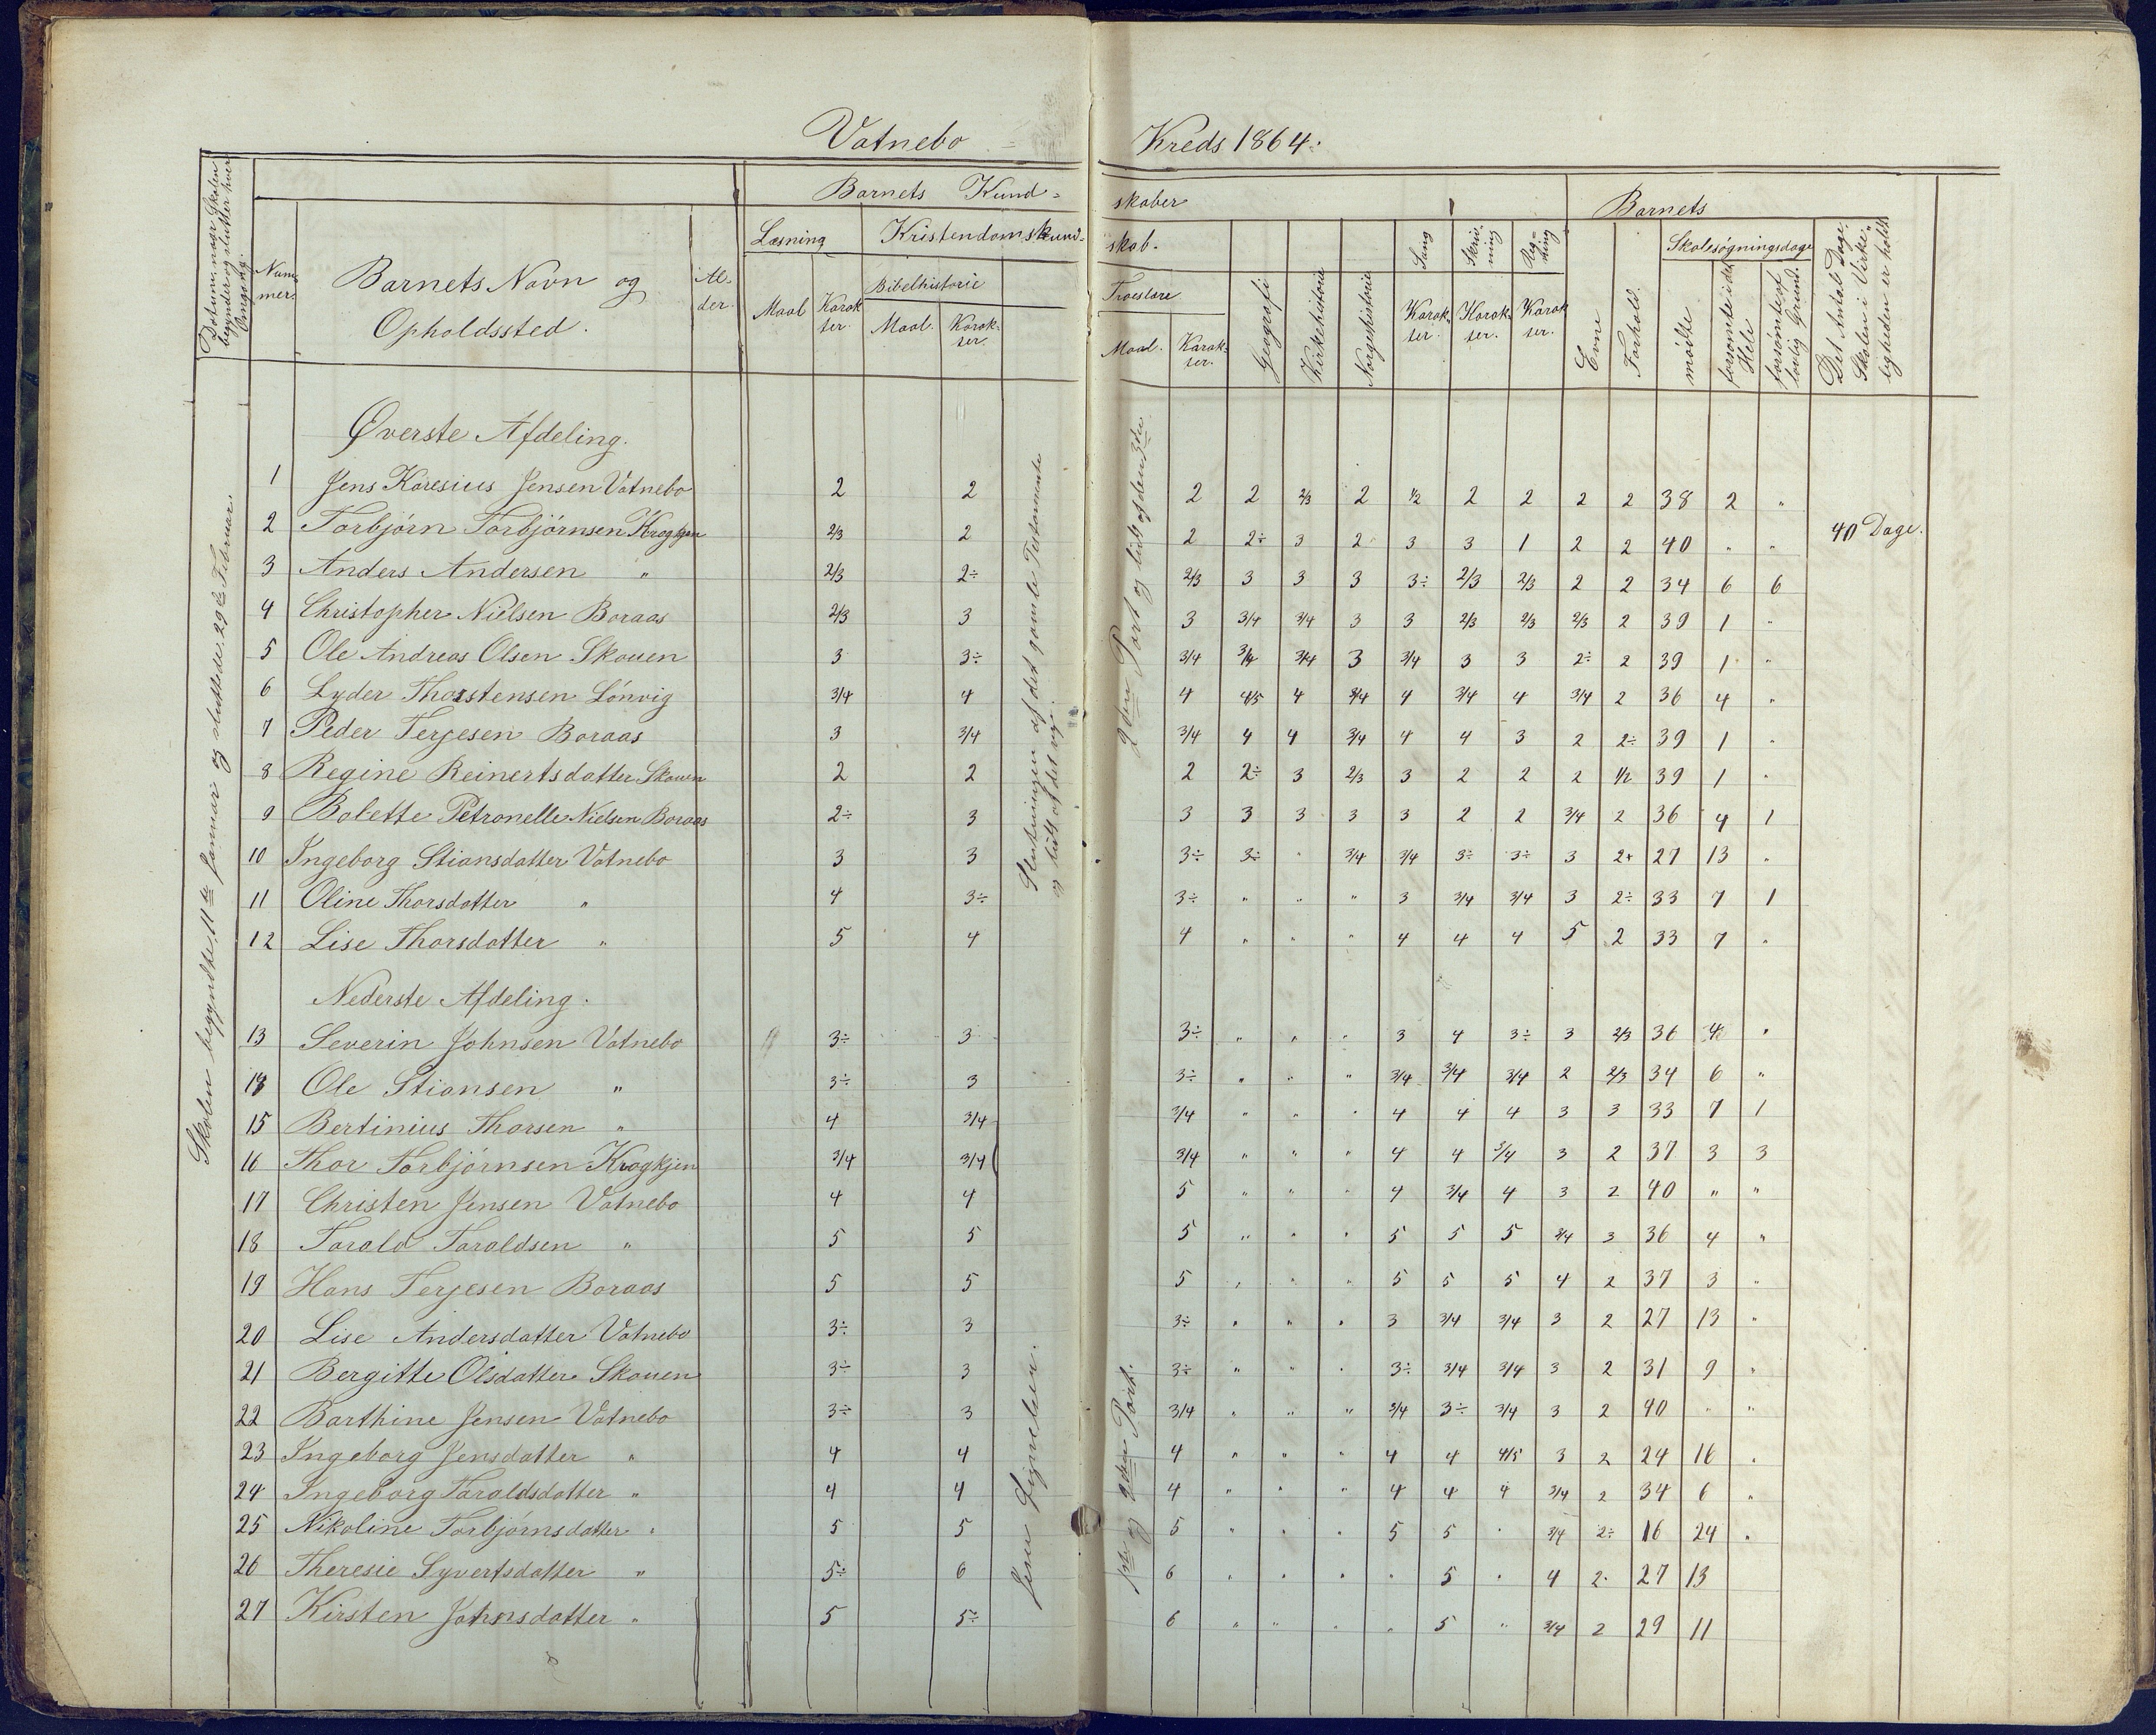 Vatnebo Kreds 1864.
Datum, naar Skolen begynder og slutter hver Omgang.
Num-mer.
Barnets Navn og Opholdssted.
Al-der.
Barnets Kund-skaber
Læsning
Maal
Karak-ter.
Kristendomskund-skab.
Bibelhistorie
Maal.
Karak-ter.
Troeslære
Maal.
Karak-ter.
Geografi
Kirkehistorie
Norgeshistorie
Sang
Karak-ter.
Skriv-ning
Karak-ter.
Reg-ning
Karak-ter.
Barnets
Evne
Forhold.
Skolesøgningsdage
mødte
forsømte i det Hele
forsømte af lovlig Grund.
Det Antal Dage Skolen i Virke-ligheden er holdt
Skolen begyndte 11te Januar og sluttede 29de Februar.
Øverste Afdeling.
Slutningen af det gamle Testamente
og lidt af det nye.
2den Part og lidt af den 3die
40 Dage.
1 Jens Karesius Jensen Vatnebo 2 2 2 2 2/3 2 1/2 2 2 2 2 38 2 "
2 Torbjørn Torbjørnsen Krogkjen 2/3 2 2 2÷ 3 2 3 3 1 2 2 40 " "
3 Anders Andersen " 2/3 2÷ 2/3 3 3 3 3÷ 2/3 2/3 2 2 34 6 6
4 Christopher Nielsen Boraas 2/3 3 3 3/4 3/4 3 3 2/3 2/3 2/3 2 39 1 "
5 Ole Andreas Olsen Skouen 3 3÷ 3/4 3/4 3/4 3 3/4 3 3 2÷ 2 39 1 "
6 Lyder Thorstensen Lönvig 3/4 4 4 4/5 4 3/4 4 3/4 4 3/4 2 36 4 "
7 Peder Terjesen Boraas 3 3/4 3/4 4 4 3/4 4 4 3 2 2÷ 39 1 "
8 Regine Reinertsdatter Skouen 2 2 2 2÷ 3 2/3 3 2 2 2 1/2 39 1 "
9 Bolette Petronelle Nielsen Boraas 2÷ 3 3 3 3 3 3 2 2 3/4 2 36 4 1
10 Ingeborg Stiansdatter Vatnebo 3 3 3÷ 3÷ " 3/4 3/4 3÷ 3÷ 3 2+ 27 13 "
11 Oline Thorsdatter " 4 3÷ 3÷ " " " 3 3/4 3/4 3 2÷ 33 7 1
12 Lise Thorsdatter " 5 4 4 " " " 4 4 4 5 2 33 7 "
Nederste Afdeling.
Jesu Lignelser.
1ste og 2den Part.
13 Severin Johnsen Vatnebo 3÷ 3 3÷ " " " 3 4 3÷ 3 2/3 36 4 "
18 Ole Stiansen " 3÷ 3 3÷ " " " 3/4 3/4 3/4 2 2/3 34 6 "
15 Bertinius Thorsen " 4 3/4 3/4 " " " 4 4 4 3 3 33 7 1
16 Thor Torbjørnsen Krogkjen 3/4 3/4 3/4 " " " 4 4 3/4 3 2 37 3 3
17 Christen Jensen Vatnebo 4 4 5 " " " 4 3/4 4 3 2 40 " "
18 Torald Taraldsen " 5 5 5 " " " 5 5 5 3/4 3 36 4 "
19 Hans Terjesen Boraas 5 5 5 " " " 5 5 5 4 2 37 3 "
20 Lise Andersdatter Vatnebo 3÷ 3 3÷ " " " 3 3/4 3/4 3 2 27 13 "
21 Bergitte Olsdatter Skouen 3÷ 3 3÷ " " " 3÷ 3/4 3/4 3 2 31 9 "
22 Barthine Jensen Vatnebo 3÷ 3 3/4 " " " 3/4 3÷ 3/4 3 2 40 " "
23 Ingeborg Jensdatter " 4 4 4 " " " 4 4 4/5 3 2 24 16 "
24 Ingeborg Taraldsdatter " 4 4 4 " " " 4 4 4 3/4 2 34 6 "
25 Nikoline Torbjørnsdatter " 5 5 5 " " " 5 5 " 3/4 2÷ 16 24 "
26 Theresie Syvertsdatter " 5÷ 6 6 " " " " 5 " 4 2 27 13
27 Kirsten Johnsdatter " 5 5÷ 6 " " " " 5 " 3/4 2 29 11